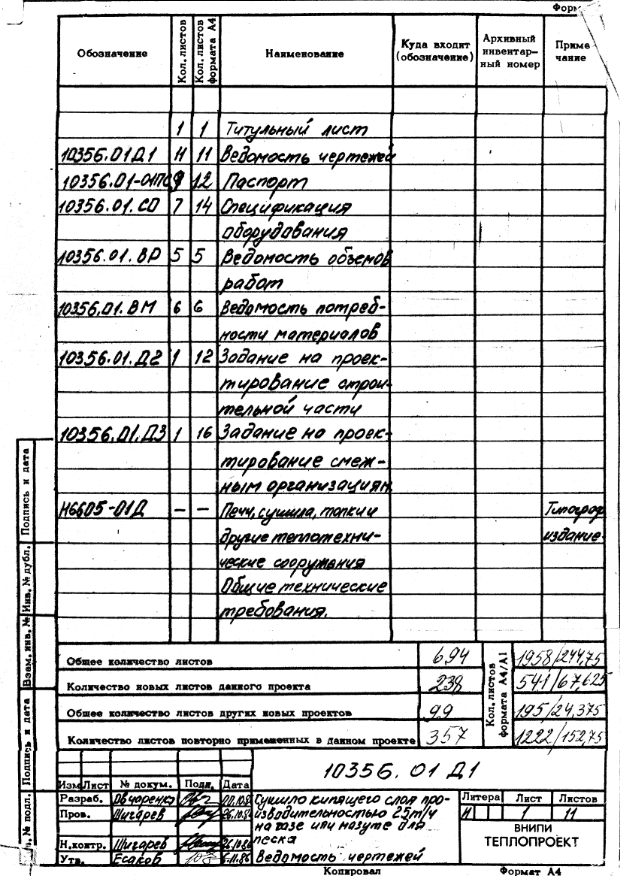 Форм
Обозначение Кол. листов Кол. листов формата А4 Наименование Куда входит (обозначение) Архивный инвентарный номер Приме чание
1 1 Титульный лист
10356.01Д1 11 11 Ведомость чертежей
10356.01-01ПС 9 12 Паспорт
10356.01.СО 7 14 Спецификация
оборудования
10356.01.ВР 5 5 Ведомость объемов
работ
10356.01.ВМ 6 6 Ведомость потреб-
ности материалов
10356.01.Д2 1 12 Задание на проек-
тирование строи-
тельной части
10356.01.Д3 1 16 Задание на проек-
тирование смеж-
ным организациям
Н6605-01Д — — Печи, сушила, топки и Типограф
другие теплотехни- издание
ческие сооружения
Общие технические
требования.
Общее количество листов 694 1958/244,75
Количество новых листов данного проекта 238 541/67,625
Общее количество листов других новых проектов 99 195/24,375
Количество листов повторно примененных в данном проекте 357 1222/152,75
Кол. листов формата А4/А1
10356.01 Д1
Изм Лист № докум. Подп. Дата
Разраб. Овчаренко Сушило кипящего слоя про-
Пров. Шигарев изводительностью 25т/ч
на газе или мазуте для
Н.контр. Шигарев песка
Утв. Есаков Ведомость чертежей
Литера Лист Листов
И 1 11
ВНИПИ
ТЕПЛОПРОЕКТ
Копировал Формат А4
Подпись и дата
Инв. № дубл.
Взам. инв. №
Подпись и дата
№ подл.